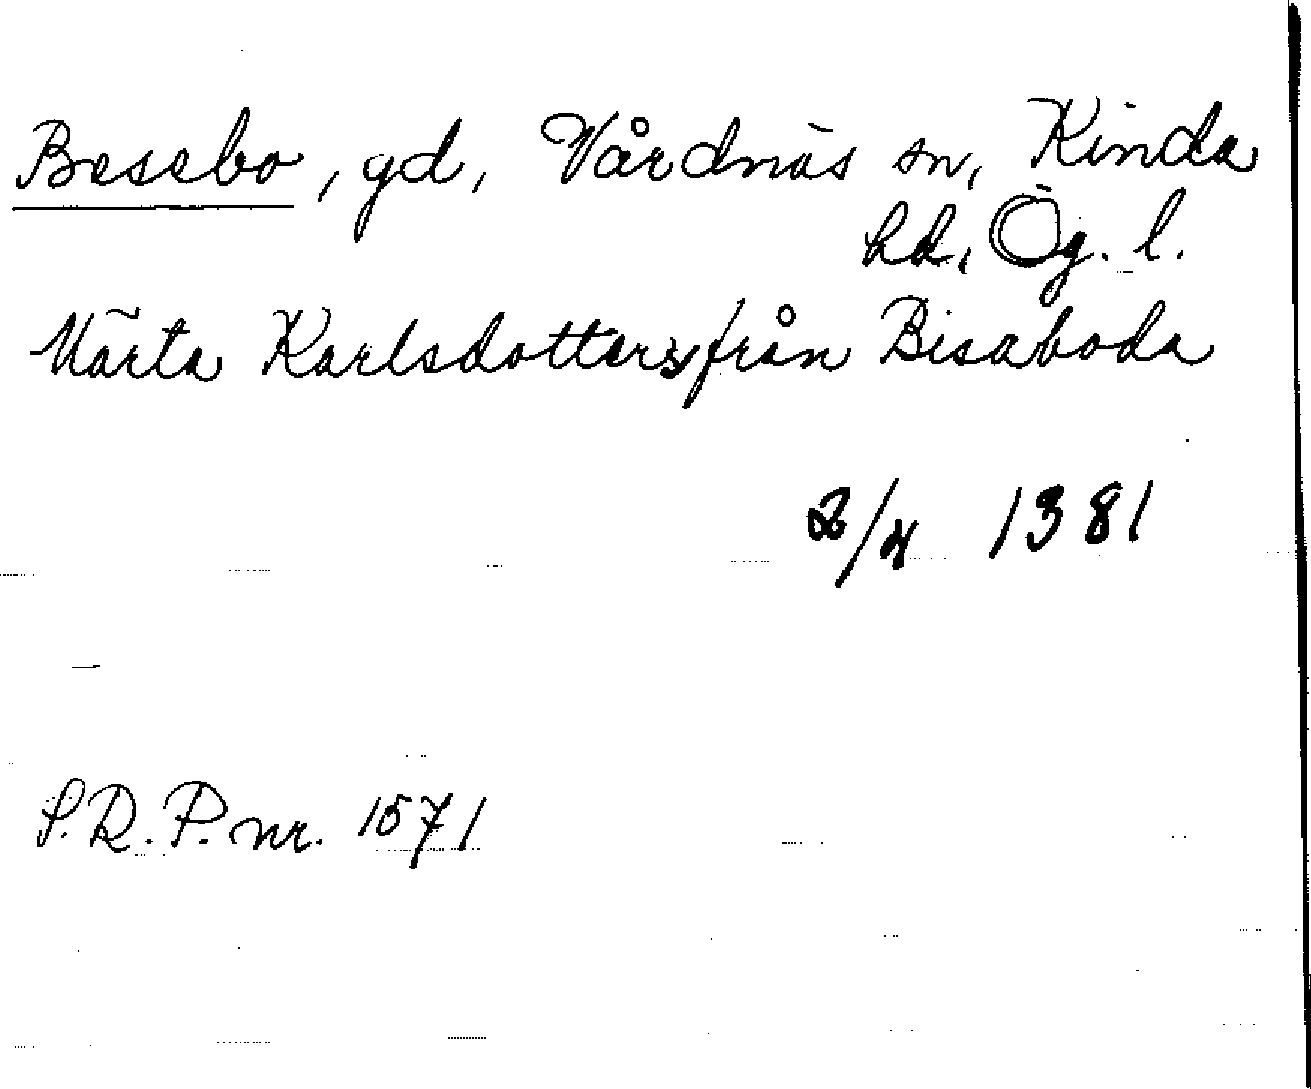 Bessebo, gd, Vårdnäs sn, Kinda
hd, Ög. l.
Märta Karlsdotters från Bisaboda
2/4 1381
S.R.P. nr. 1571